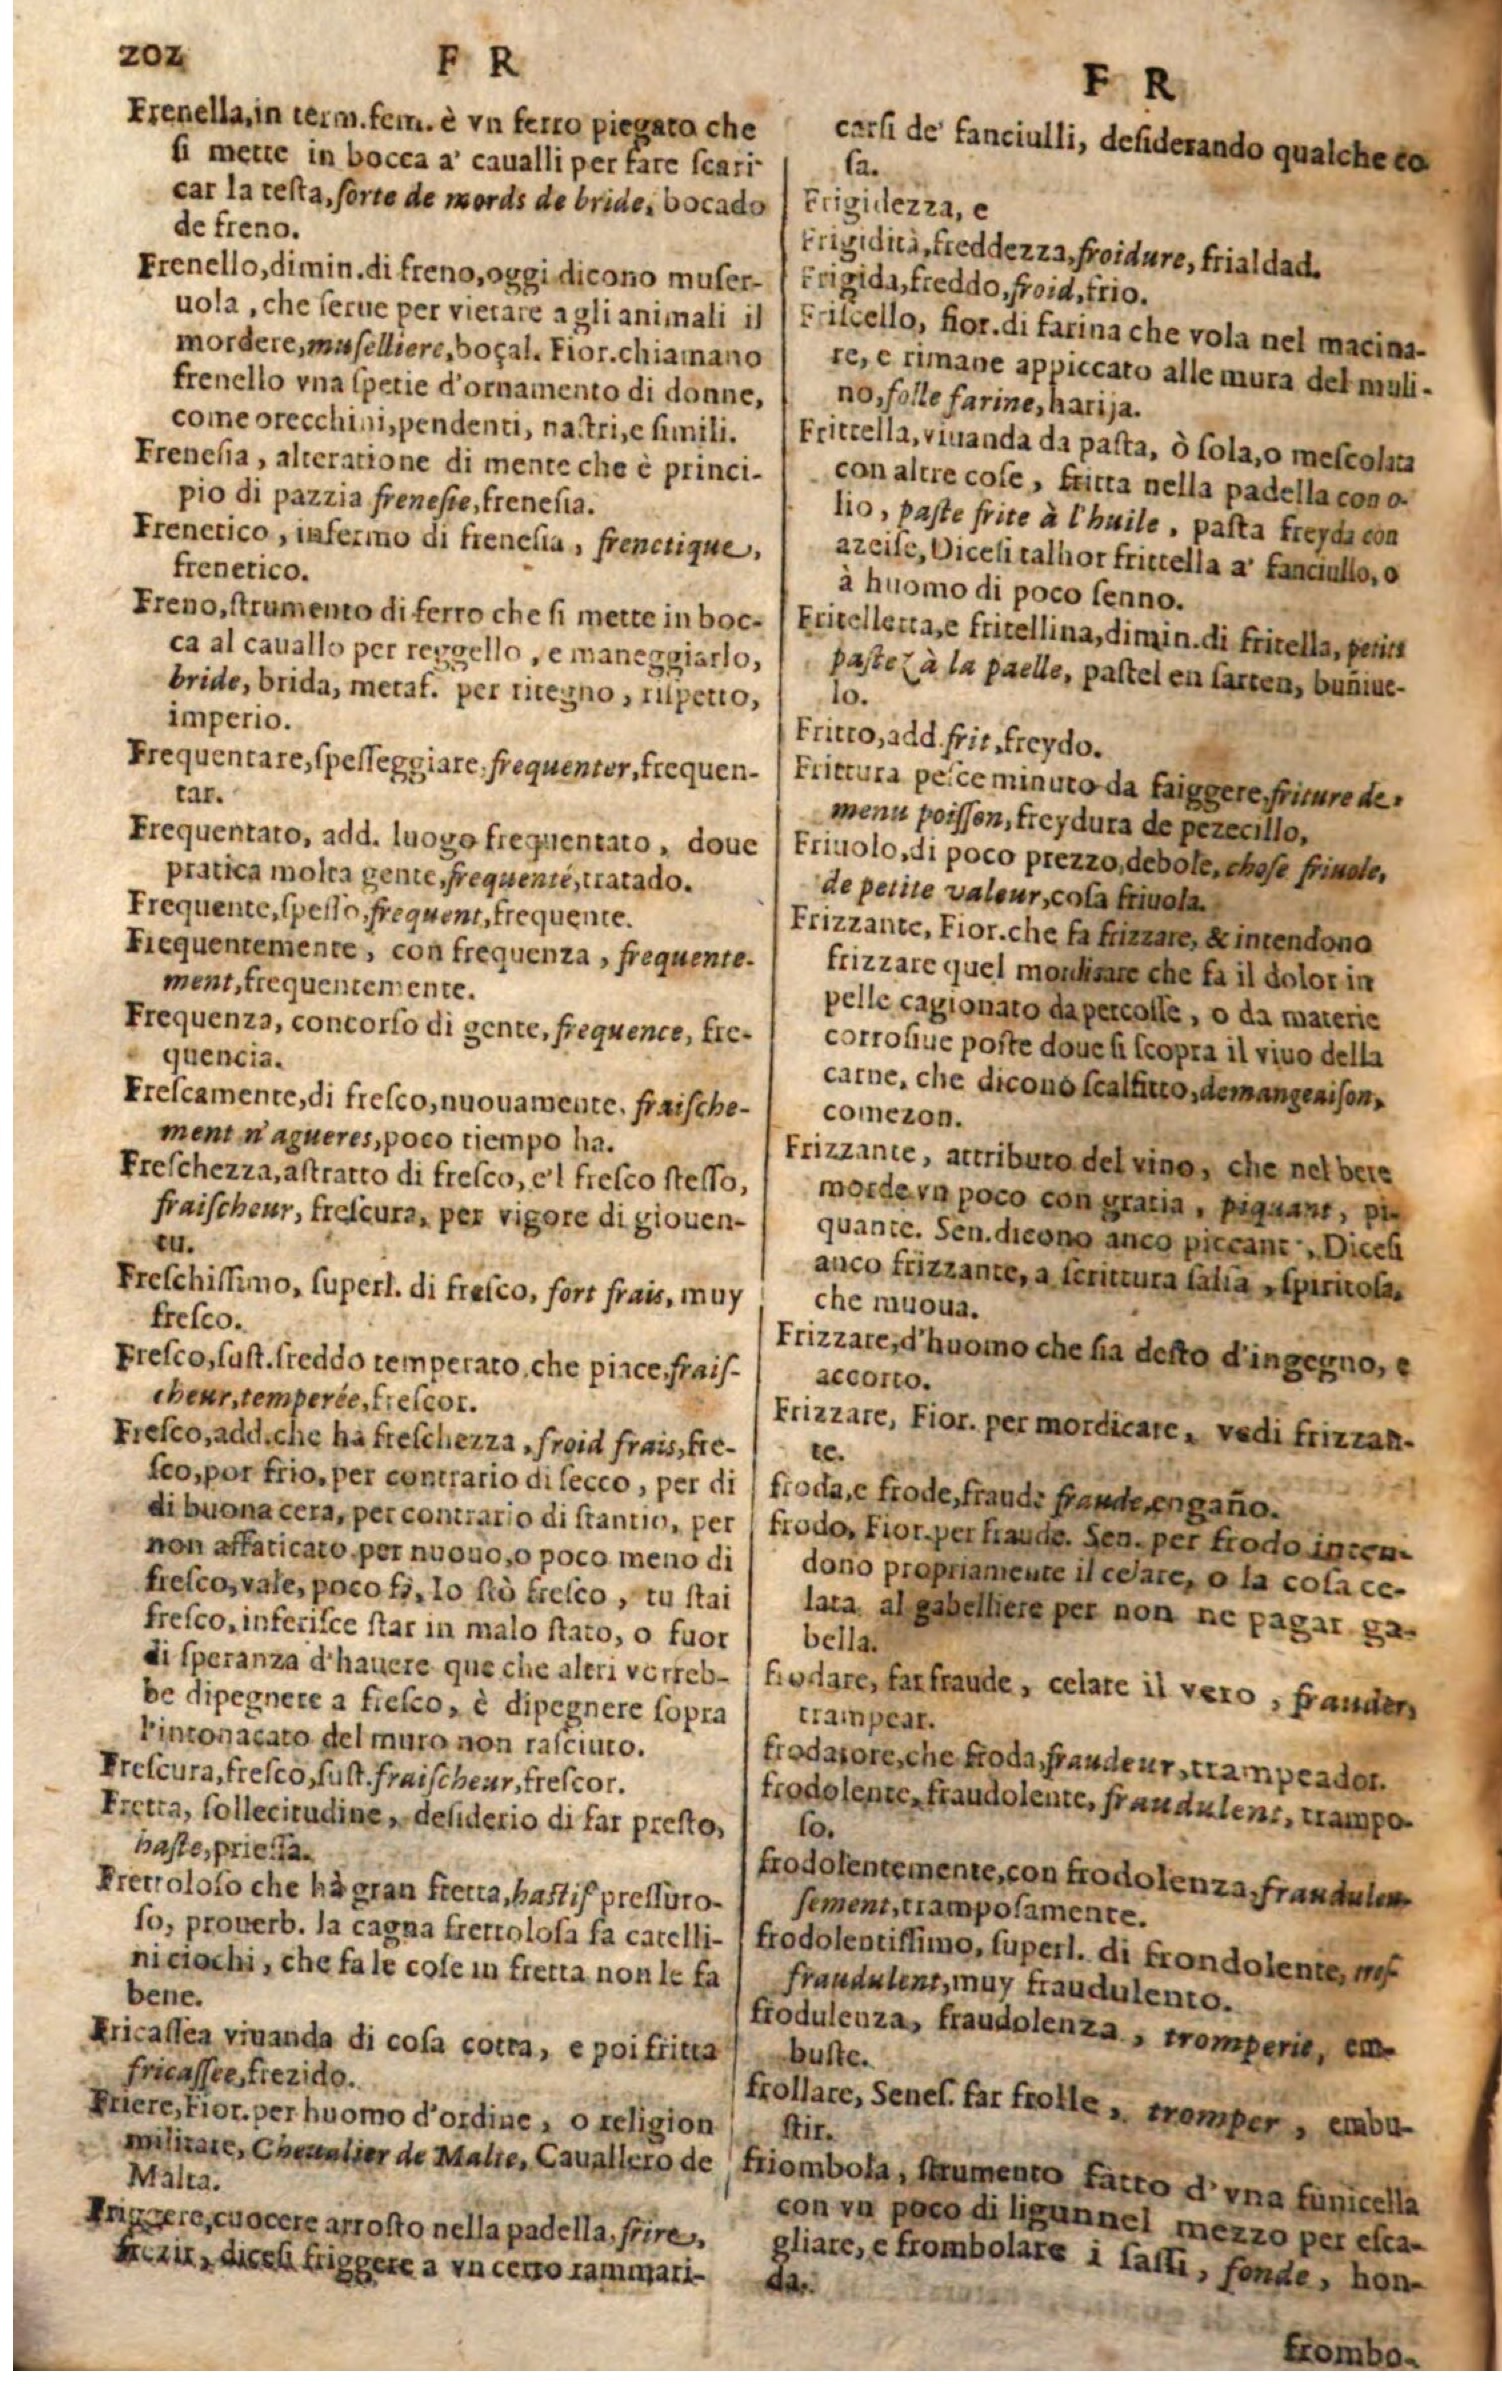 202
F R
Frenella,in term.fem. è vn ferro piegato che
ſi mette in bocca a' caualli per fare ſcari
car la teſta, ſorte de mords de bride, bocado
de freno.
Frenello,dimin.di freno,oggi dicono muſer-
uola , che ſerue per vietare a gli animali il
mordere,muſelliere,boçal. Fior.chiamano
frenello vna ſpetie d'ornamento di donne,
come orecchini,pendenti, naſtri,e ſimili.
Freneſia , alteratione di mente che è princi-
pio di pazzia freneſie,freneſia.
Frenetico , infermo di freneſia , frenetique,
frenetico.
Freno,ſtrumento di ferro che ſi mette in boc-
ca al cauallo per reggello , e maneggiarlo,
bride, brida, metaf. per ritegno , riſpetto,
imperio.
Frequentare,ſpeſſeggiare,frequenter,frequen-
tar.
Frequentato, add. luogo frequentato , doue
pratica molta gente,frequenté,tratado.
Frequente,ſpeſſo,frequent,frequente.
Frequentemente , con frequenza , frequente-
ment,frequentemente.
Frequenza, concorſo di gente, frequence, fre-
quencia.
Freſcamente,di freſco,nuouamente, fraiſche-
ment n'agueres,poco tiempo ha.
Freſchezza,aſtratto di freſco, e'l freſco ſteſſo,
fraiſcheur, freſcura, per vigore di giouen-
tu.
Freſchiſſimo, ſuperl. di freſco, fort frais, muy
freſco.
Freſco,ſuſt.freddo temperato che piace,fraiſ-
cheur,temperée,freſcor.
Freſco,add.che hà freſchezza , froid frais,fre-
ſco,por frio, per contrario di ſecco , per di
di buona cera, per contrario di ſtantio, per
non affaticato per nuouo,o poco meno di
freſco, vale, poco fà, Io ſtò freſco , tu ſtai
freſco, inferiſce ſtar in malo ſtato, o fuor
di ſperanza d'hauere que che altri vorreb-
be dipegnere a freſco, è dipegnere ſopra
l'intonacato del muro non raſciuto.
Freſcura,freſco,ſuſt.fraiſcheur,freſcor.
Fretta, ſollecitudine , deſiderio di far preſto,
haſte,prieſſa.
Frettoloſo che hà gran fretta,haſtif preſſuro-
ſo, prouerb. la cagna frettoloſa fa catelli-
ni ciochi , che fa le coſe in fretta non le fa
bene.
Fricaſſea viuanda di coſa cotta, e poi fritta
fricaſſee,frezido.
Friere,Fior.per huomo d'ordine , o religion
militare, Cheualier de Malte, Cauallero de
Malta.
Friggere,cuocere arroſto nella padella, frire,
frezir, diceſi friggere a vn certo rammari-
F R
carſi de' fanciulli, deſiderando qualche co
ſa.
Frigidezza, e
Frigidità,freddezza,froidure, frialdad.
Frigida,freddo,froid,frio.
Friſcello, fior.di farina che vola nel macina-
re, e rimane appiccato alle mura del muli-
no,folle farine,harija.
Frittella,viuanda da paſta, ò ſola,o meſcolata
con altre coſe , fritta nella padella con o-
lio , paſte frite à l'huile , paſta freyda con
azeiſe, Diceſi talhor frittella a' fanciullo, o
à huomo di poco ſenno.
Fritelletta,e fritellina,dimin.di fritella, petits
paſtez à la paelle, paſtel en ſarten, buñiue-
lo.
Fritto,add.frit,freydo.
Frittura peſce minuto da faiggere,friture de
menu poiſſon,freydura de pezecillo,
Friuolo,di poco prezzo,debole, choſe friuole,
de petite valeur,coſa friuola.
Frizzante, Fior.che fa frizzare, & intendono
frizzare quel mordicare che fa il dolor in
pelle cagionato da percoſſe , o da materie
corroſiue poſte doue ſi ſcopra il viuo della
carne, che dicono ſcalfitto,demangeaiſon,
comezon.
Frizzante , attributo del vino, che nel bere
morde vn poco con gratia , piquant, pi-
quante. Sen.dicono anco piccante, Diceſi
anco frizzante, a ſcrittura falſa , ſpiritoſa,
che muoua.
Frizzare,d'huomo che ſia deſto d'ingegno, e
accorto.
Frizzare, Fior. per mordicare, vedi frizzan-
te.
froda,e frode,fraude fraude,engaño.
frodo, Fior.per fraude. Sen. per frodo inten-
dono propriamente il celare, o la coſa ce-
lata al gabelliere per non ne pagar ga-
bella.
frodare, far fraude , celare il vero , frauder,
trampear.
frodatore,che froda,fraudeur,trampeador.
frodolente, fraudolente, fraudulent, trampo-
ſo.
frodolentemente,con frodolenza,fraudulen-
ſement,trampoſamente.
frodolentiſſimo, ſuperl. di frondolente, treſ
fraudulent,muy fraudulento.
frodulenza, fraudolenza , tromperie, em-
buſte.
frollare, Seneſ. far frolle , tromper , embu-
ſtir.
friombola , ſtrumento fatto d'vna funicella
con vn poco di ligunnel mezzo per eſca-
gliare, e frombolare i ſaſſi , fonde , hon-
da.
frombo-